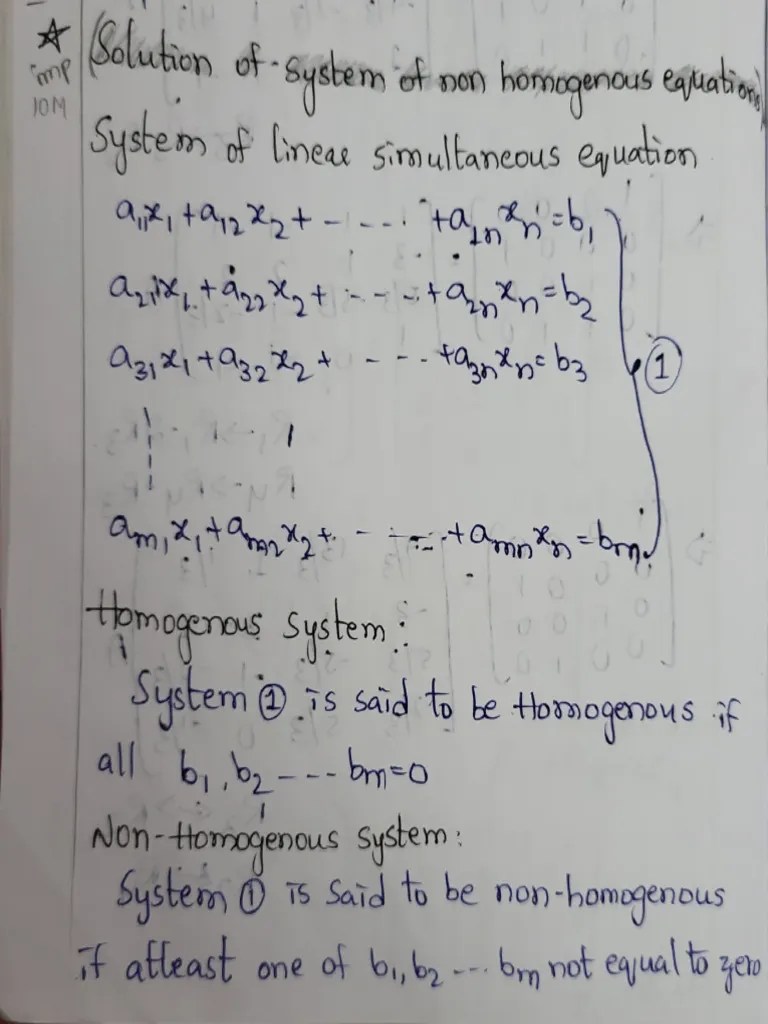 ☆ (Solution of system of non homogenous equations)
imp
10M
System of linear simultaneous equation
a₁₁x₁ + a₁₂x₂ + - - - - + a₁ₙxₙ = b₁
a₂₁x₁ + a₂₂x₂ + - - - + a₂ₙxₙ = b₂
a₃₁x₁ + a₃₂x₂ + - - - + a₃ₙxₙ = b₃
①
aₘ₁x₁ + aₘ₂x₂ + - - - - + aₘₙxₙ = bₘ
Homogenous system:
System ① is said to be Homogenous if
all b₁, b₂ - - - - bₘ = 0
Non-Homogenous system:
System ① is said to be non-homogenous
if atleast one of b₁, b₂ --- bₘ not equal to zero